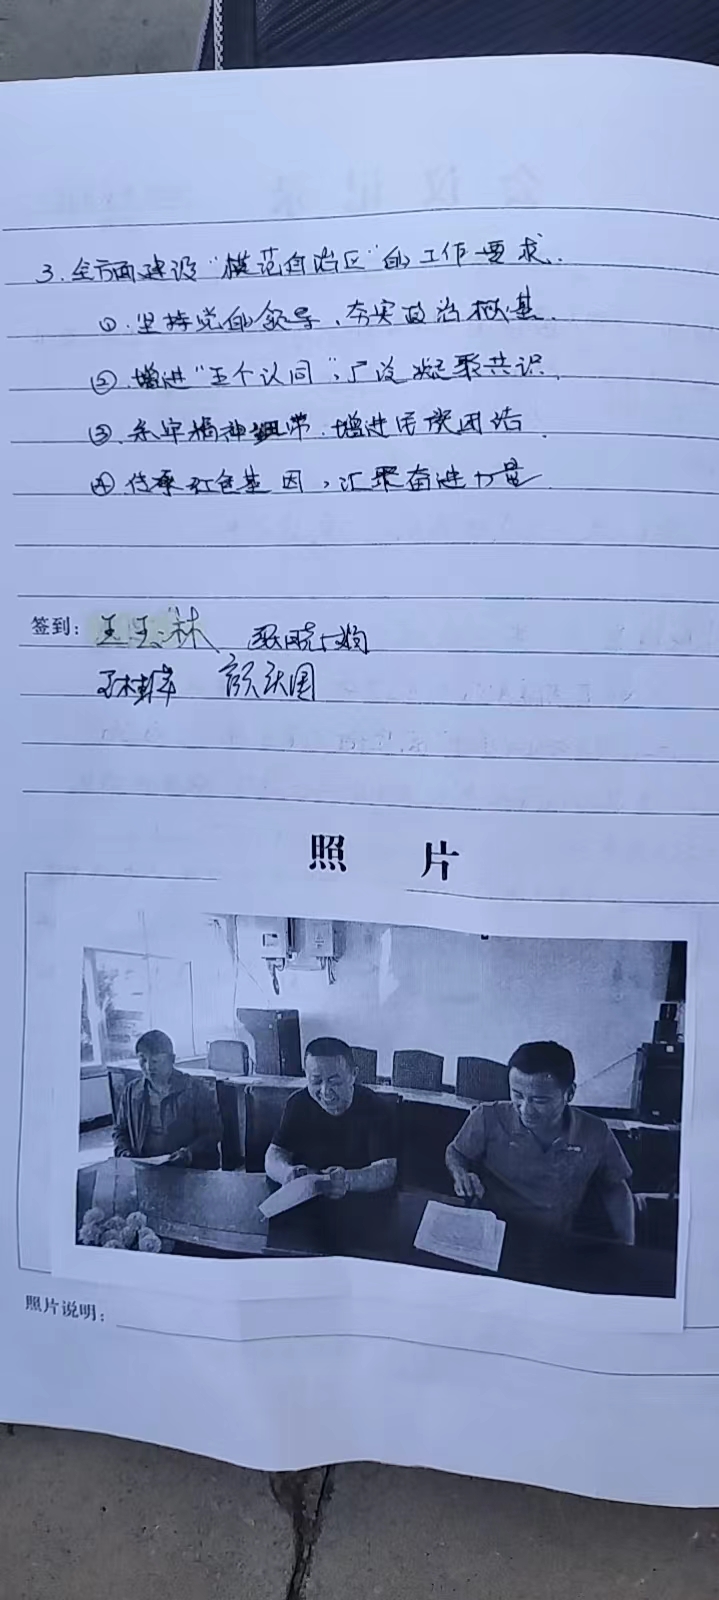 3.全方面建设“模范自治区”的工作要求.
①.坚持党的领导、夯实政治根基.
②.增进“五个认同”,广泛凝聚共识.
③.系牢精神纽带.增进民族团结.
④.传承红色基因,汇聚奋进力量.
签到:
照 片
照片说明: